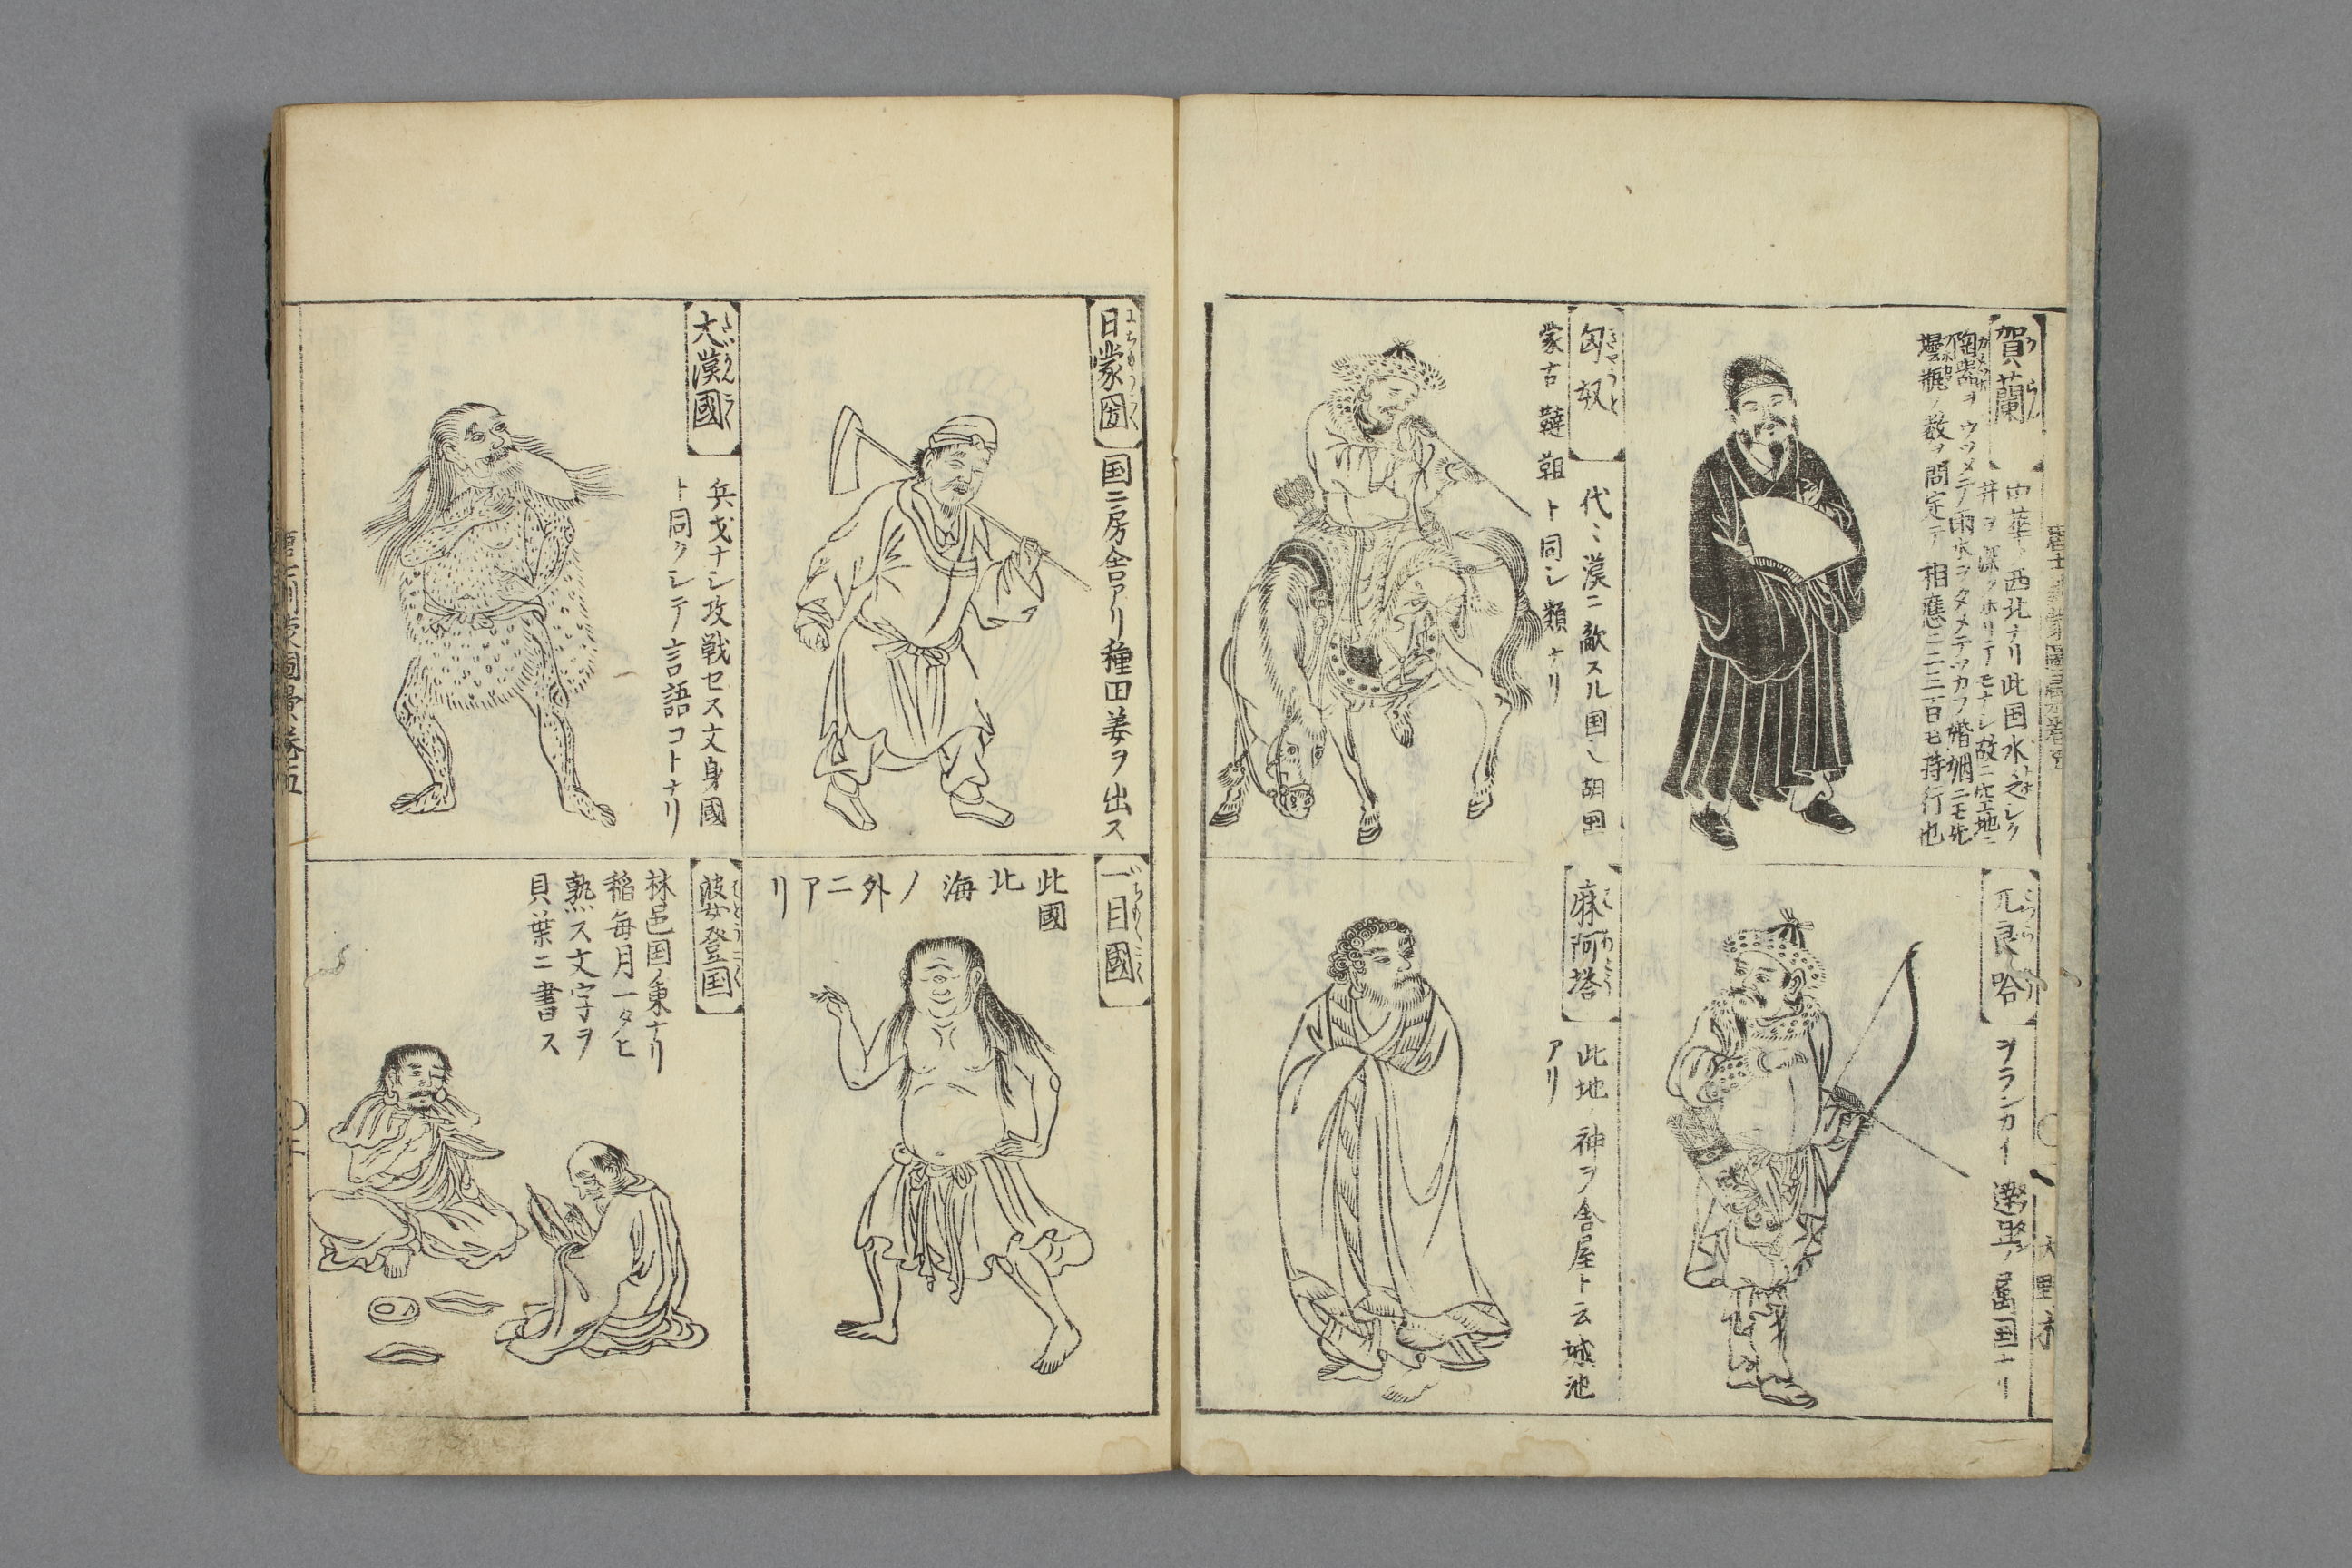 賀蘭
中華ノ西北ナリ此国水乏シク
井ヲ深クホリテモナシ故ニ空地ニ
陶器ヲウツメテ雨水ヲタメテツカフ婚姻ニモ先
甖瓶ノ数ヲ問定テ相應ニ二三百モ持行也
兀良哈
ヲランカイ
属国ナリ
匈奴
代々漢ニ敵スル国也胡国
蒙古韃靼ト同シ類ナリ
麻阿塔
此地ノ神ヲ舎屋ト云城池
アリ
日蒙国
国ニ房舎アリ種田姜ヲ出ス
一目國
此國
北海ノ外ニアリ
大漢國
兵戈ナシ攻戦セス文身國
ト同クシテ言語コトナリ
波登国
林邑国ノ東ナリ
稲毎月一タヒ
熟ス文字ヲ
貝葉ニ書ス